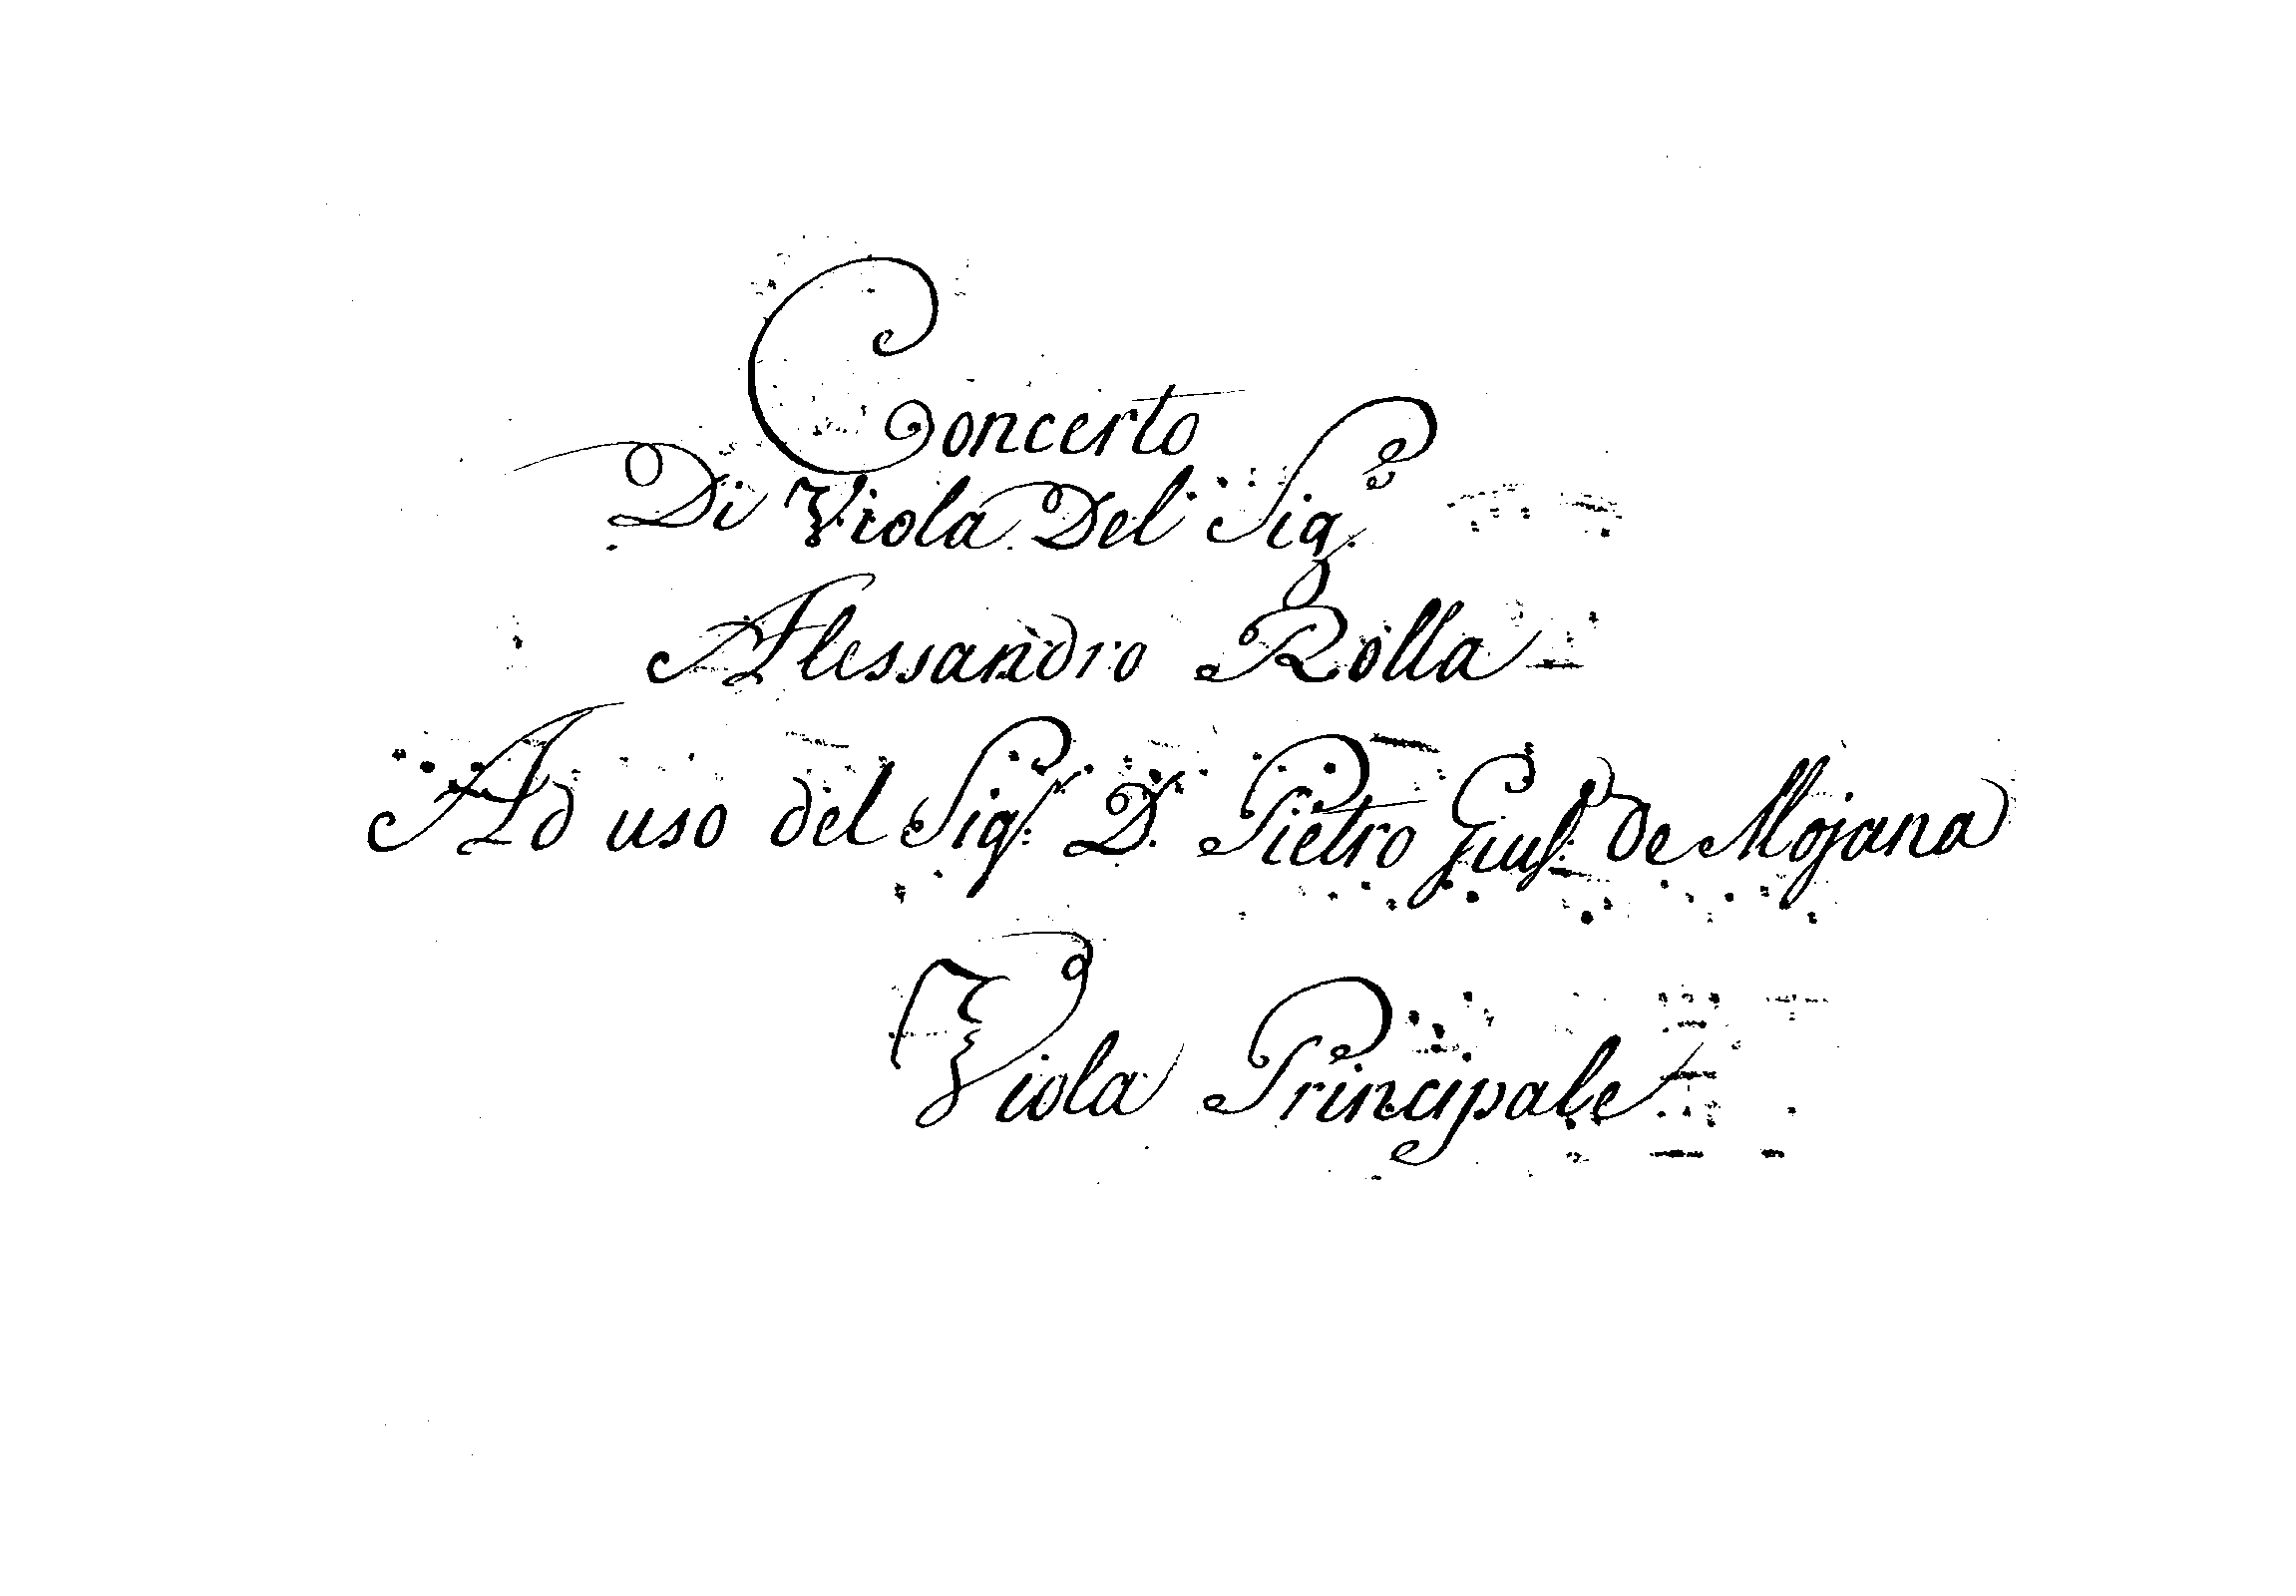 Concerto
Di Viola Del Sig.
Alessandro Rolla
Ad uso del Sig.r D. Pietro Gius. de Mojana
Viola Principale